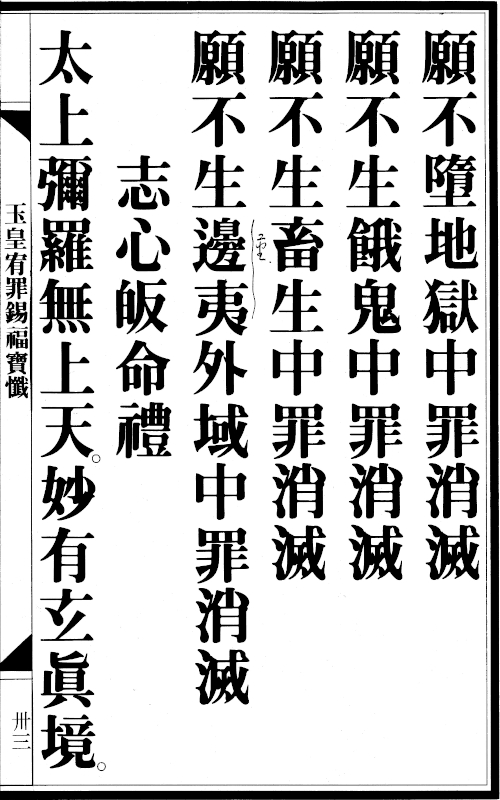 願不墮地獄中罪消滅
願不生餓鬼中罪消滅
願不生畜生中罪消滅
願不生邊夷外域中罪消滅
志心皈命禮
太上彌羅無上天。妙有玄眞境。
玉皇宥罪錫福寶懺
卅三